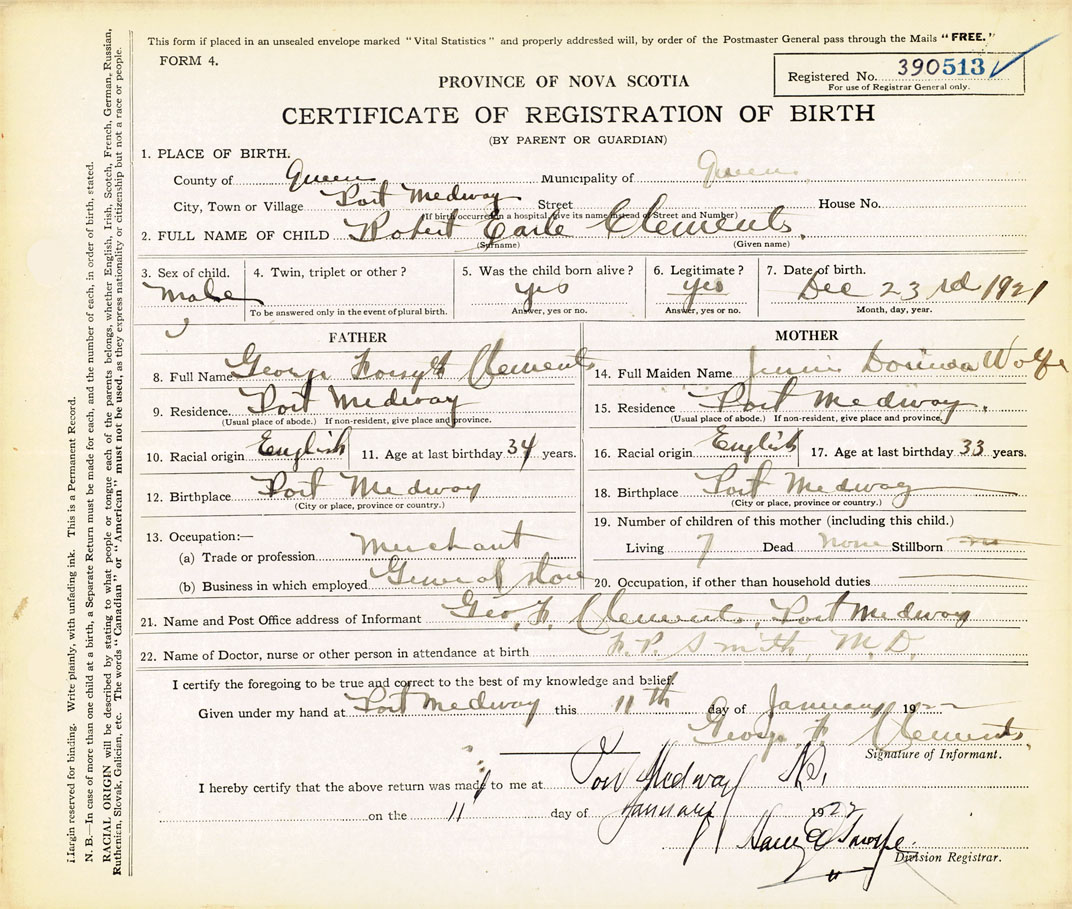 This form if placed in an unsealed envelope marked "Vital Statistics" and properly addressed will, by order of the Postmaster General pass through the Mails "FREE."
FORM 4.
Registered No. 390513
For use of Registrar General only.
PROVINCE OF NOVA SCOTIA
CERTIFICATE OF REGISTRATION OF BIRTH
(BY PARENT OR GUARDIAN)
1. PLACE OF BIRTH.
County of Queen Municipality of Queen
City, Town or Village Port Medway Street House No.
(If birth occurred in a hospital, give its name instead of Street and Number)
2. FULL NAME OF CHILD Robert Earle Clements.
(Surname) (Given name)
3. Sex of child. 4. Twin, triplet or other? 5. Was the child born alive? 6. Legitimate? 7. Date of birth.
Male yes yes Dec 23rd 1921
To be answered only in the event of plural birth. Answer, yes or no. Answer, yes or no. Month, day, year.
FATHER
8. Full Name George Forsyth Clements
9. Residence Port Medway
(Usual place of abode.) If non-resident, give place and province.
10. Racial origin English 11. Age at last birthday 34 years.
12. Birthplace Port Medway
(City or place, province or country.)
13. Occupation:—
(a) Trade or profession Merchant
(b) Business in which employed General store
MOTHER
14. Full Maiden Name Jennie Dorinda Wolfe
15. Residence Port Medway.
(Usual place of abode.) If non-resident, give place and province.
16. Racial origin English 17. Age at last birthday 33 years.
18. Birthplace Port Medway
(City or place, province or country.)
19. Number of children of this mother (including this child.)
Living 7 Dead None Stillborn no
20. Occupation, if other than household duties
21. Name and Post Office address of Informant Geo. F. Clements, Port Medway
22. Name of Doctor, nurse or other person in attendance at birth F. P. Smith, M.D.
I certify the foregoing to be true and correct to the best of my knowledge and belief.
Given under my hand at Port Medway this 11th day of January 1922
George F Clements.
Signature of Informant.
I hereby certify that the above return was made to me at Port Medway N.S.
on the 11 day of January 1922
Harry E Thorpe
Division Registrar.
Margin reserved for binding. Write plainly, with unfading ink. This is a Permanent Record.
N. B.—In case of more than one child at a birth, a Separate Return must be made for each, and the number of each, in order of birth, stated.
RACIAL ORIGIN will be described by stating to what people or tongue each of the parents belongs, whether English, Irish, Scotch, French, German, Russian,
Ruthenien, Slovak, Galician, etc. The words "Canadian" or "American" must not be used, as they express nationality or citizenship but not a race or people.